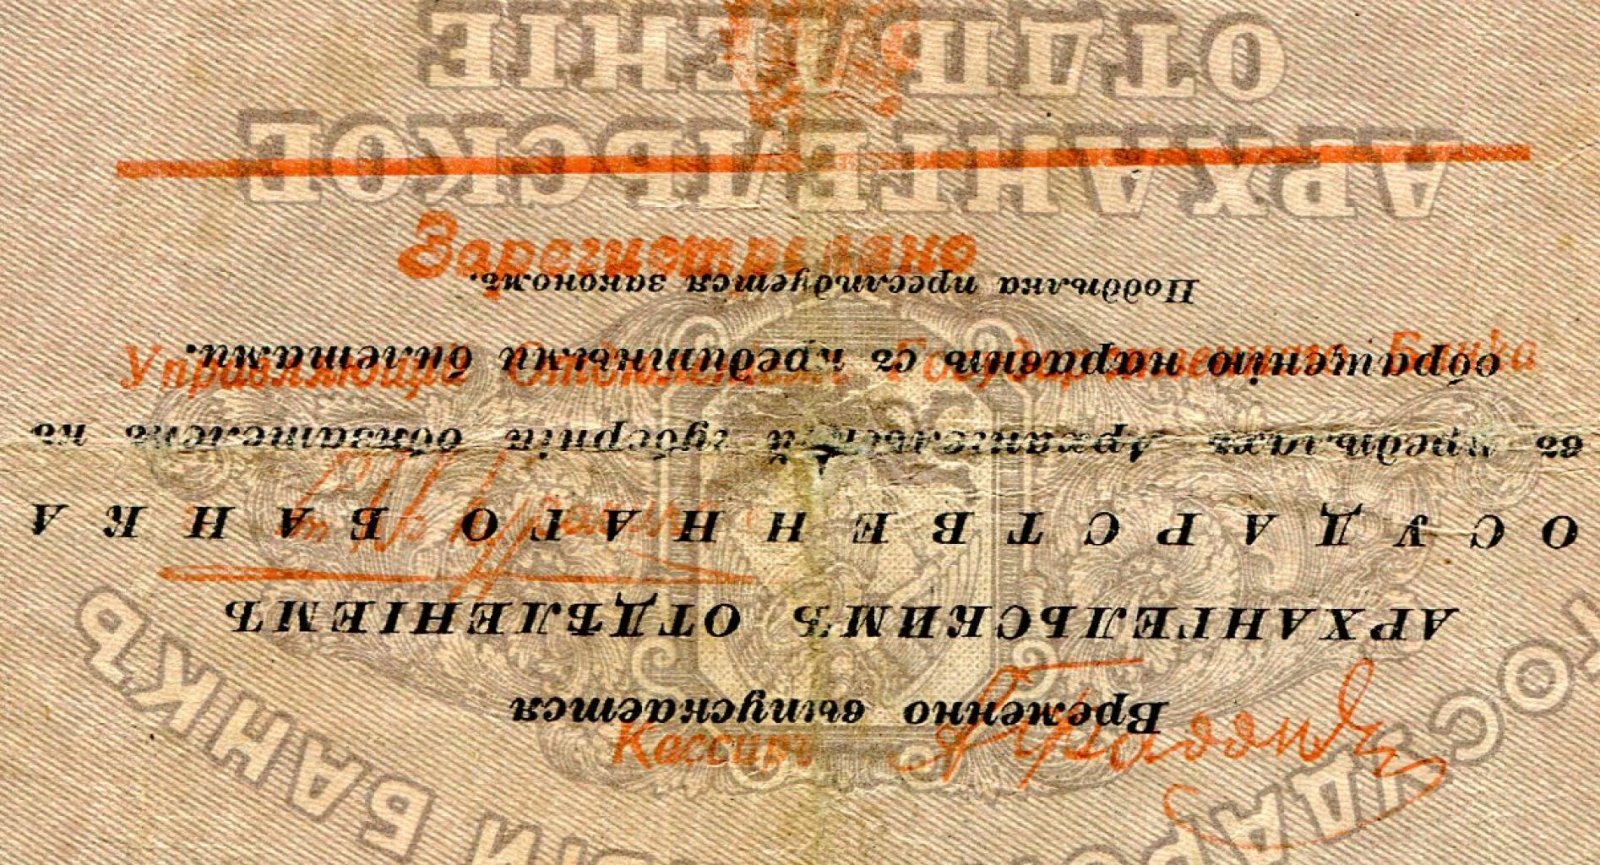 Временно выпускается
АРХАНГЕЛЬСКИМЪ ОТДѢЛЕНІЕМЪ
ОСУДАРСТВЕННАГО БАНКА
въ предѣлахъ Архангельской губерніи обязателенъ къ
обращенію наравнѣ съ кредитными билетами.
Поддѣлка преслѣдуется закономъ.
БАНКЪ
АРХАНГЕЛЬСКОЕ
ОТДѢЛЕНІЕ
Зарегистровано
Управляющій Отдѣленіемъ Государственнаго Банка
Кассиръ